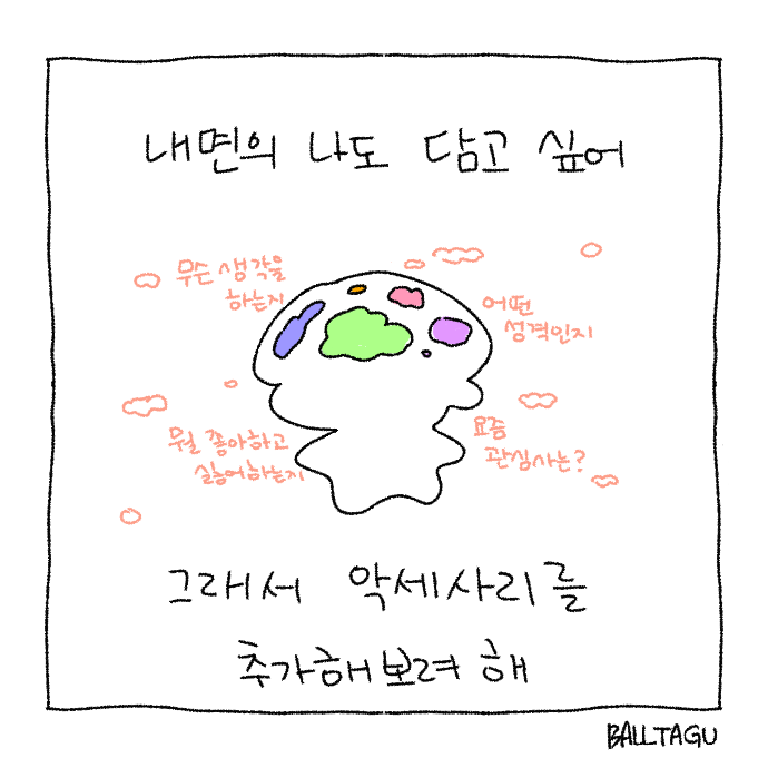 내면의 나도 담고 싶어
무슨 생각을
하는지
어떤
성격인지
뭘 좋아하고
싫어하는지
요즘
관심사는?
그래서 악세사리를
추가해보려 해
BALLTAGU